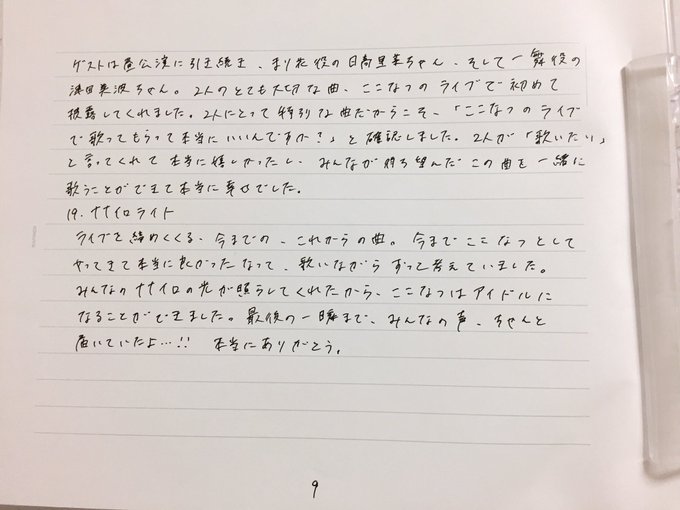 ゲストは昼公演に引き続き、まり花役の日高里菜ちゃん、そして一舞役の
津田美波ちゃん。2人のとても大切な曲、ここなつのライブで初めて
披露してくれました。2人にとって特別な曲だからこそ、「ここなつのライブ
で歌ってもらって本当にいいんですか?」と確認しました。2人が「歌いたい」
と言ってくれて本当に嬉しかったし、みんなが待ち望んだこの曲を一緒に
歌うことができて本当に幸せでした。
19. ナナイロライト
ライブを締めくくる、今までの、これからの曲。今までここなつとして
やってきて本当に良かったなって、歌いながらずっと考えていました。
みんなのナナイロの光が照らしてくれたから、ここなつはアイドルに
なることができました。最後の一瞬まで、みんなの声、ちゃんと
届いていたよ…!! 本当にありがとう。
9